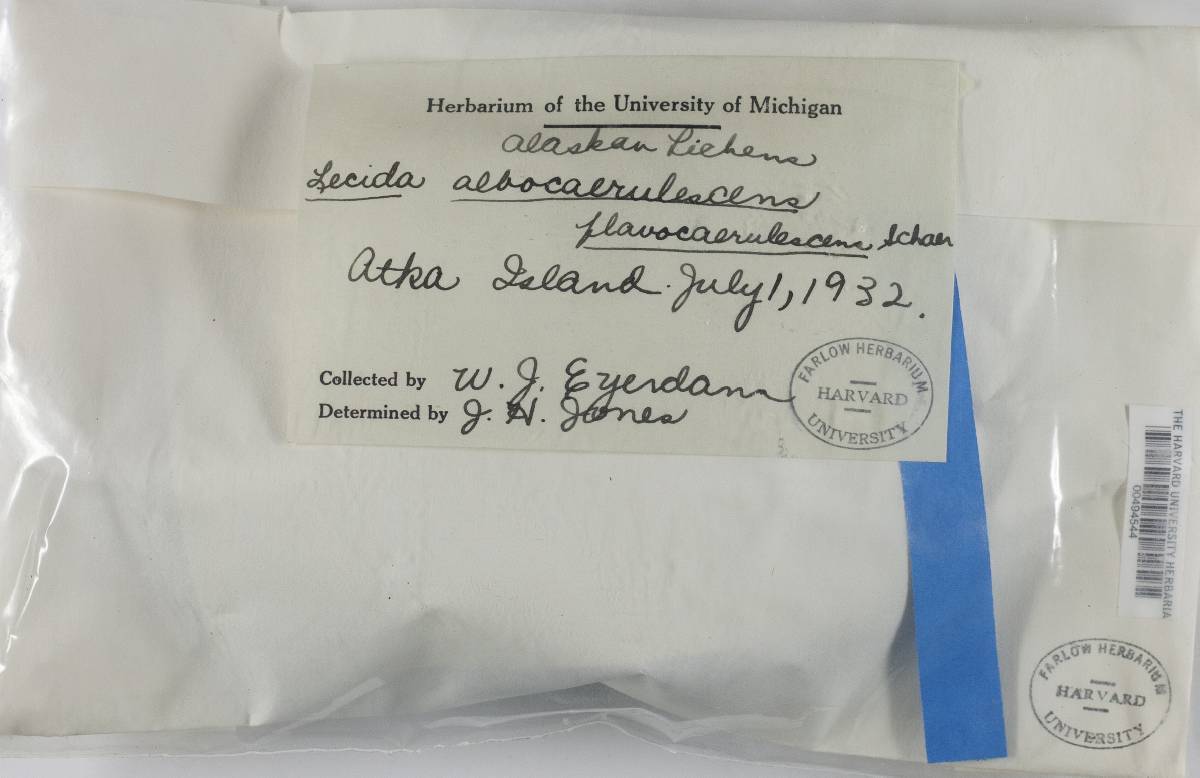 Herbarium of the University of Michigan
Alaskan Lichens
Lecida albocaerulescens
flavocaerulescens Schaer
Atka Island. July 1, 1932.
Collected by W. J. Eyerdam
Determined by J. H. Jones
FARLOW HERBARIUM
HARVARD
UNIVERSITY
THE HARVARD UNIVERSITY HERBARIA
00494544
FARLOW HERBARIUM
HARVARD
UNIVERSITY